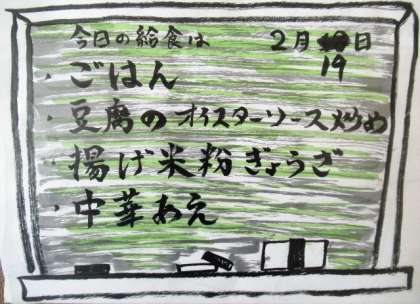 今日の給食は 2月19日
・ごはん
・豆腐のオイスターソース炒め
・揚げ米粉ぎょうざ
・中華あえ